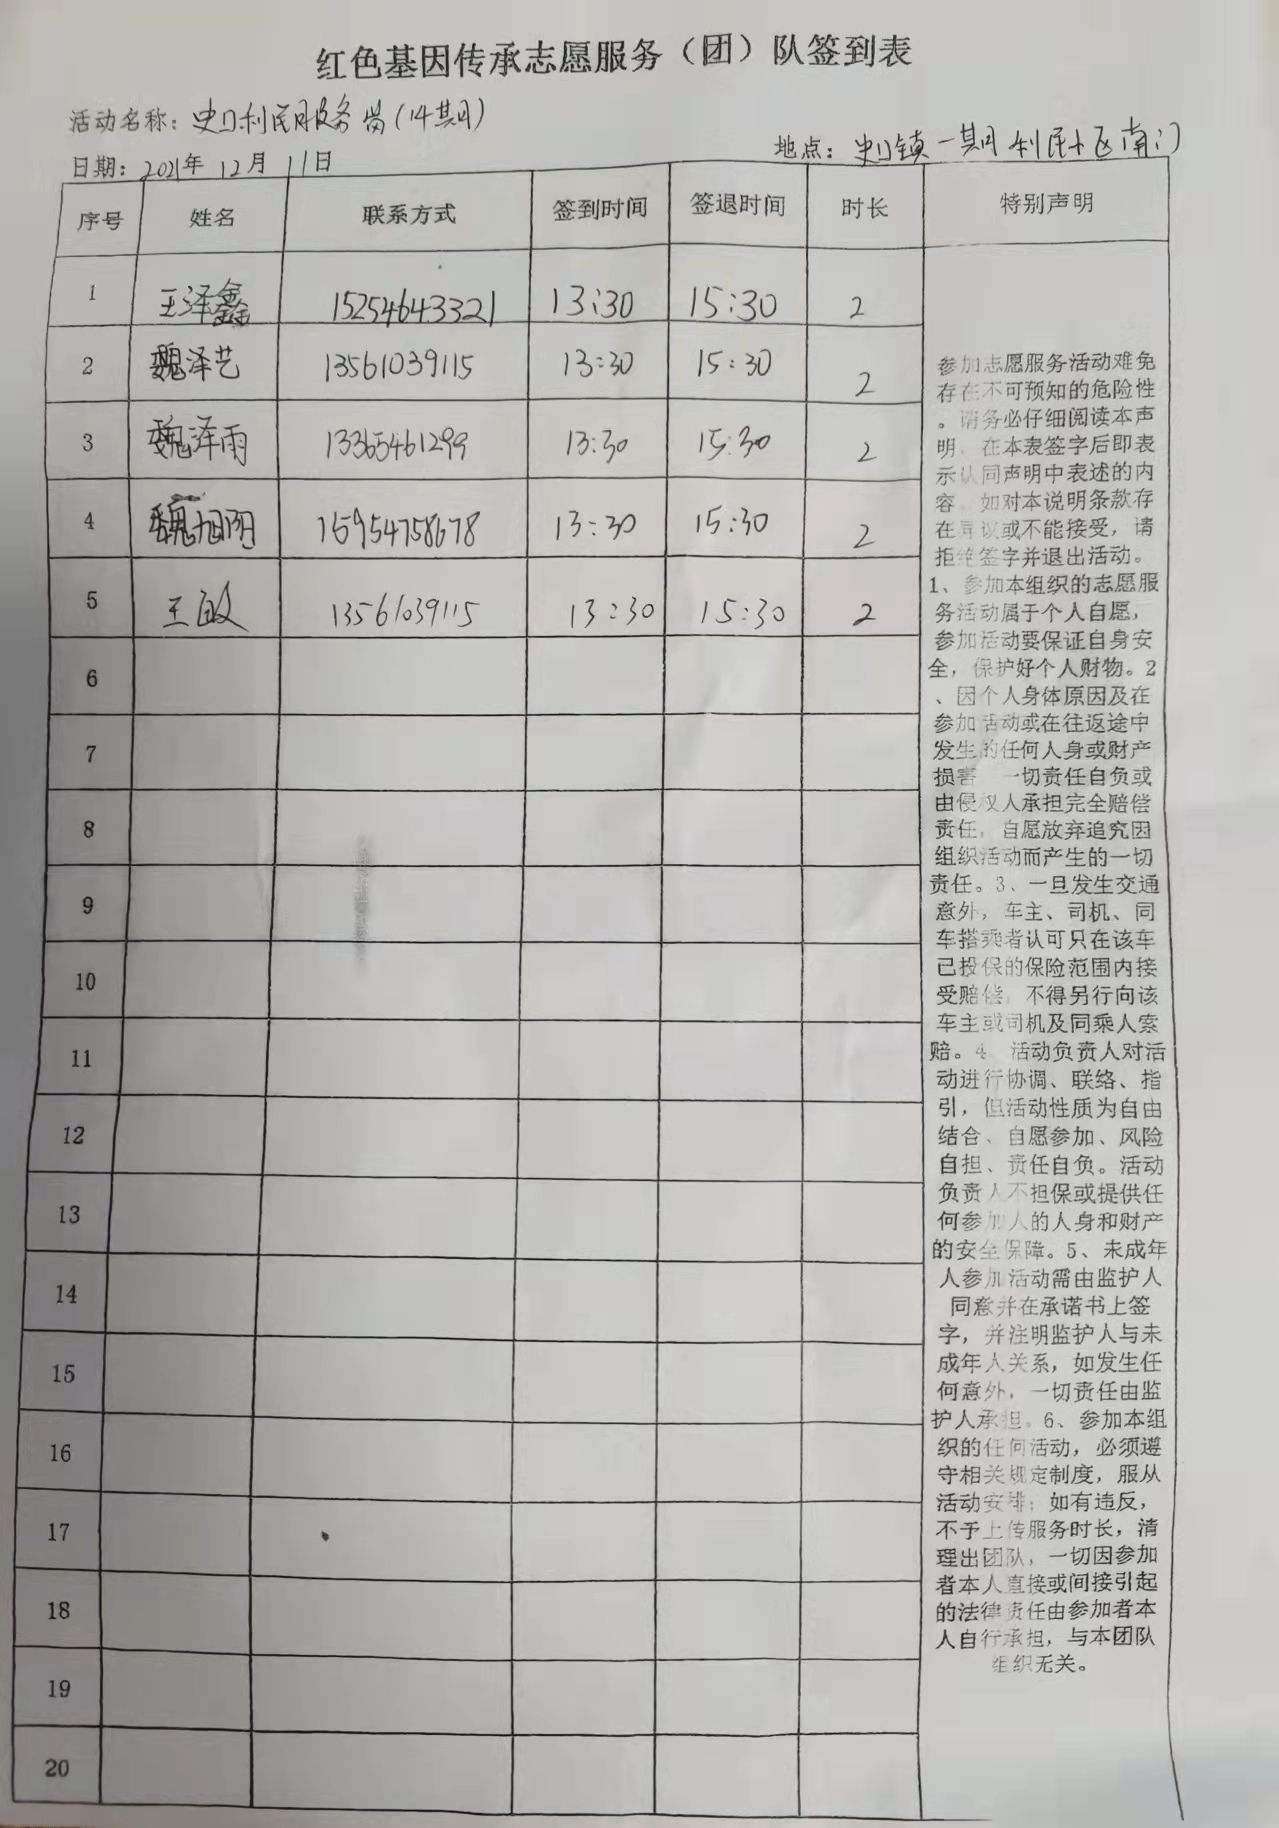 红色基因传承志愿服务（团）队签到表
活动名称：史口利民服务岗(14期)
日期：2021年 12月 11日
地点：史口镇一期利民小区南门
序号 姓名 联系方式 签到时间 签退时间 时长 特别声明
1 王泽鑫 15254643321 13:30 15:30 2
2 魏泽艺 13561039115 13:30 15:30 2
3 魏泽雨 13365461299 13:30 15:30 2
4 魏旭阳 15954758678 13:30 15:30 2
5 王敏 13561039115 13:30 15:30 2
6
7
8
9
10
11
12
13
14
15
16
17
18
19
20
参加志愿服务活动难免
存在不可预知的危险性
。请务必仔细阅读本声
明，在本表签字后即表
示认同声明中表述的内
容，如对本说明条款存
在异议或不能接受，请
拒绝签字并退出活动。
1、参加本组织的志愿服
务活动属于个人自愿，
参加活动要保证自身安
全，保护好个人财物。2
、因个人身体原因及在
参加活动或在往返途中
发生的任何人身或财产
损害，一切责任自负或
由侵权人承担完全赔偿
责任，自愿放弃追究因
组织活动而产生的一切
责任。3、一旦发生交通
意外，车主、司机、同
车搭乘者认可只在该车
已投保的保险范围内接
受赔偿，不得另行向该
车主或司机及同乘人索
赔。4、活动负责人对活
动进行协调、联络、指
引，但活动性质为自由
结合、自愿参加、风险
自担、责任自负。活动
负责人不担保或提供任
何参加人的人身和财产
的安全保障。5、未成年
人参加活动需由监护人
同意并在承诺书上签
字，并注明监护人与未
成年人关系，如发生任
何意外，一切责任由监
护人承担。6、参加本组
织的任何活动，必须遵
守相关规定制度，服从
活动安排；如有违反，
不予上传服务时长，清
理出团队，一切因参加
者本人直接或间接引起
的法律责任由参加者本
人自行承担，与本团队
组织无关。